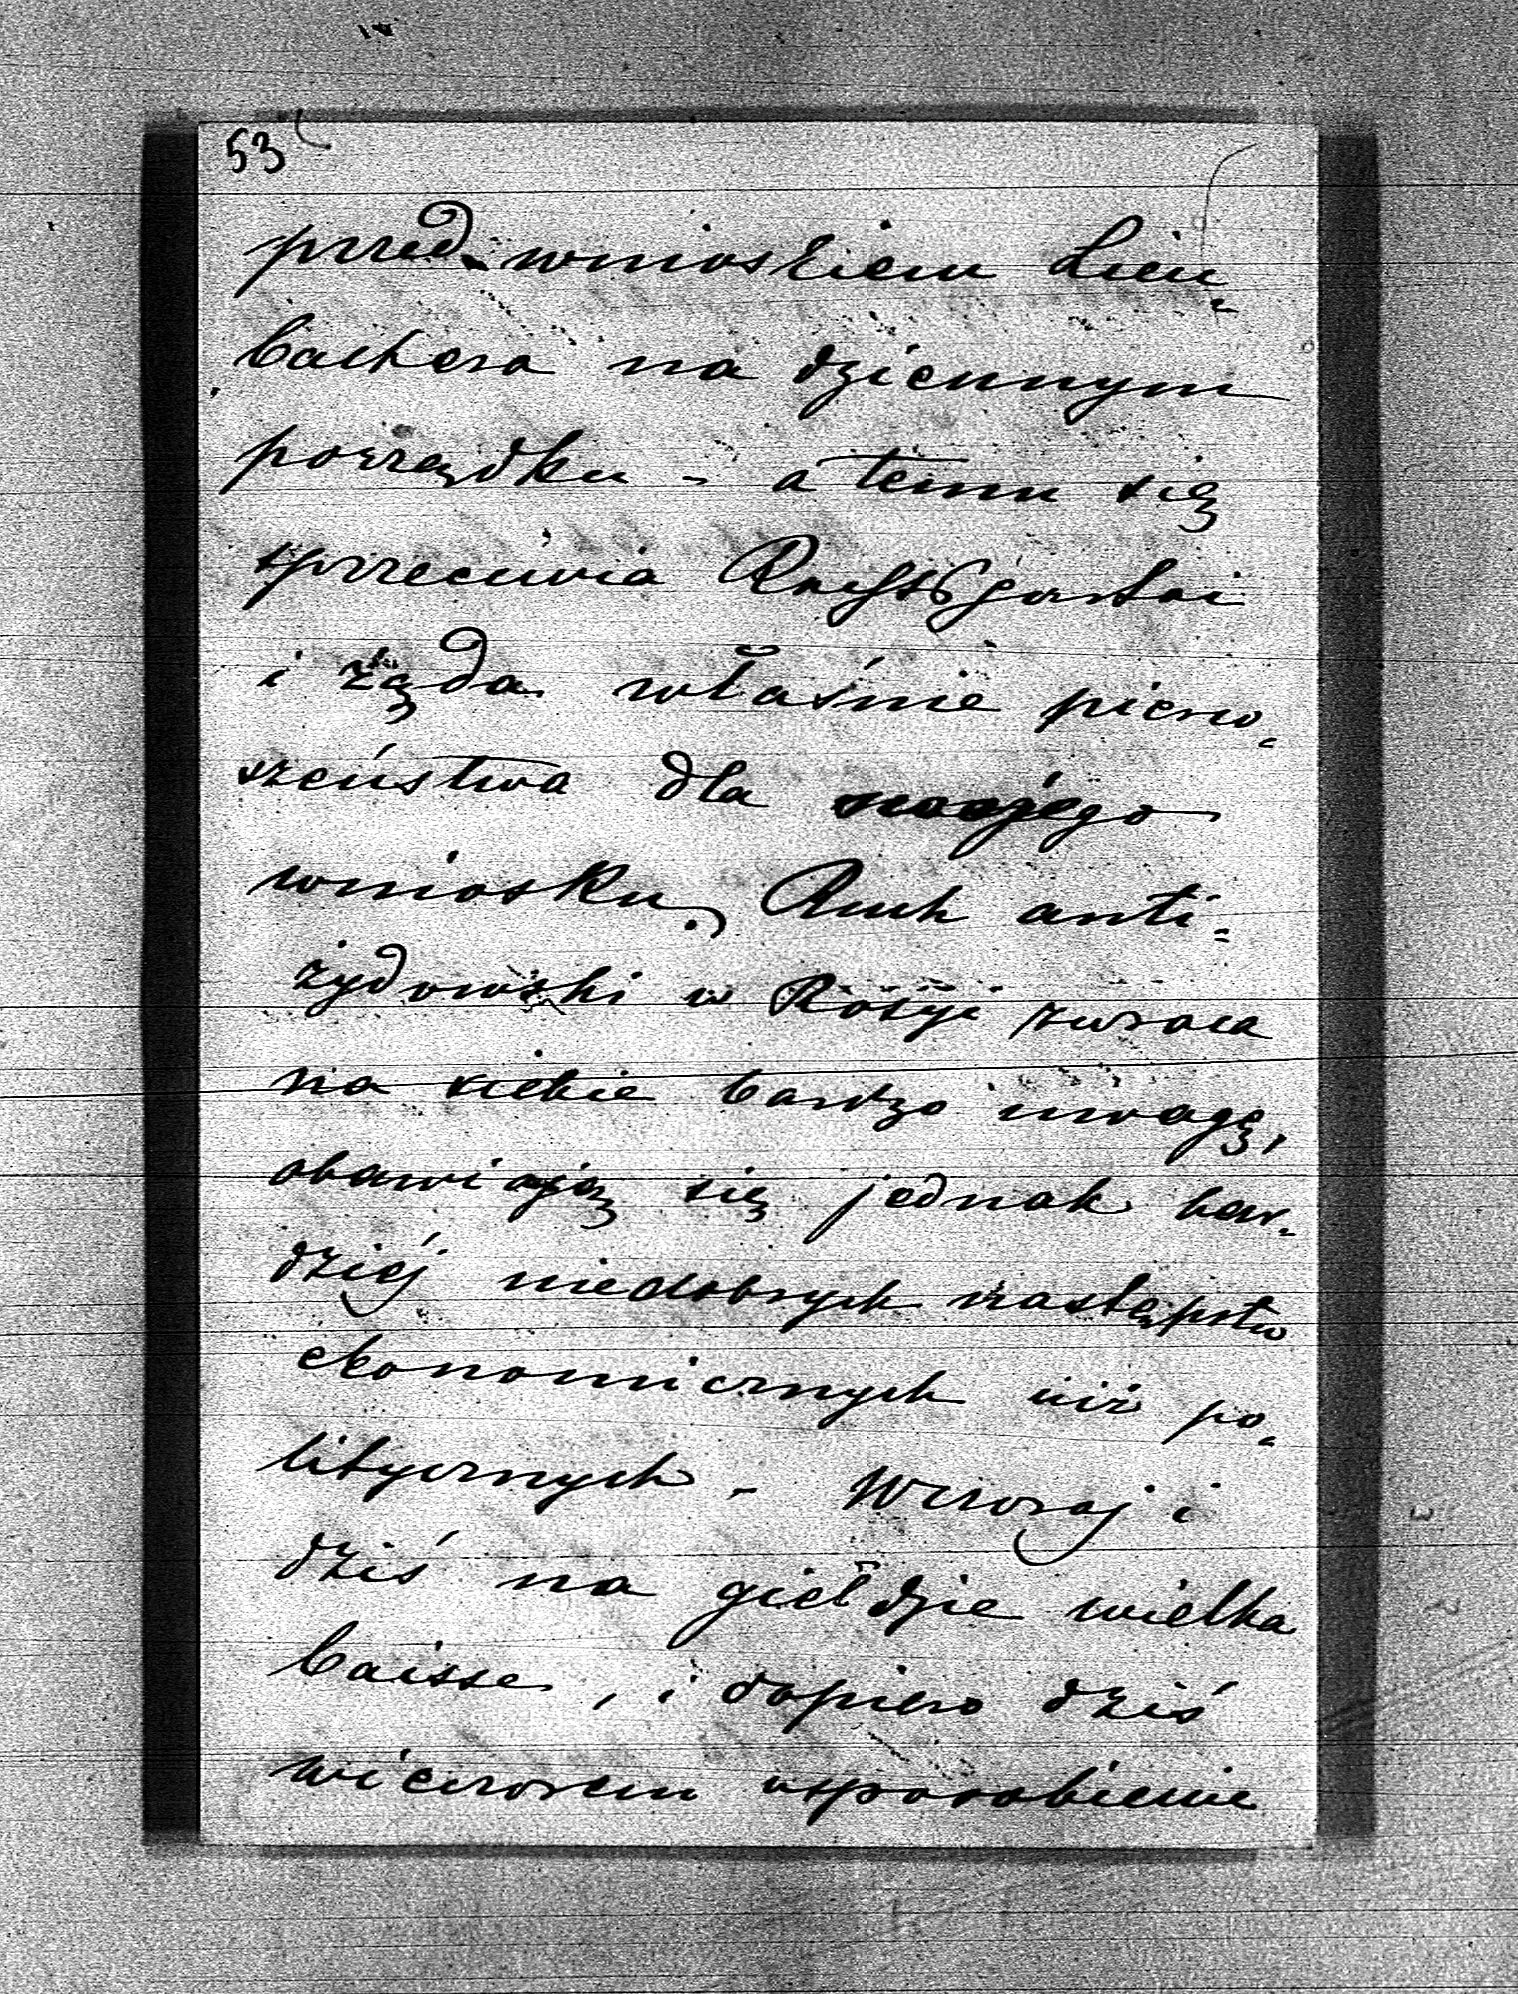 53
przed wnioskiem Lien-
bachera na dziennym
porządku - a temu się
sprzeciwia Rechtspartei
i żąda właśnie pierw-
szeństwa dla swojego
wniosku. Ruch anti-
żydowski w Rosyi zwraca
na siebie bardzo uwagę,
obawiają się jednak bar-
dziej niedobrych następstw
ekonomicznych niż po-
litycznych - Wczoraj i
dziś na giełdzie wielka
baisse, i dopiero dziś
wieczorem usposobienie